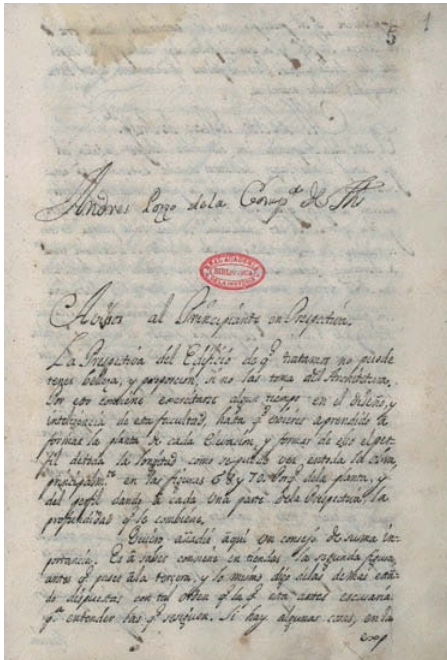 5 1
Andres Pozo de la Comp.ª de Jhs
REAL ACADEMIA
BIBLIOTECA
DE LA HISTORIA
Avisos al Principiante en Prespectiva.
La Prespectiva del Edificio de q.e tratamos no puede
tener belleza, y proporcion, si no las toma del Architectura.
Por esto combiene exercitarse algun tiempo en el diseño, y
inteligencia de esta facultad, hasta q.e estés aprendido a
formar la planta de cada Elevacion, y formar de ello el per-
fil de toda la longitud como se puede ver, en toda la obra,
principalm.te en las figuras 68 y 70. Porq.e de la planta, y
del perfil dando à cada una parte de la Prespectiva, la
profundidad q.e le combiene.
Quiero añadir aqui un consejo de suma im-
portancia. Es à saber comiene entiendas la segunda figura
antes q.e pases à la tercera, y lo mismo digo de las demas estan-
do dispuestas con tal orden q.e la q.e esta antes es necesaria
p.ª entender las q.e se siguen. Si hay algunas cosas, en la
exp